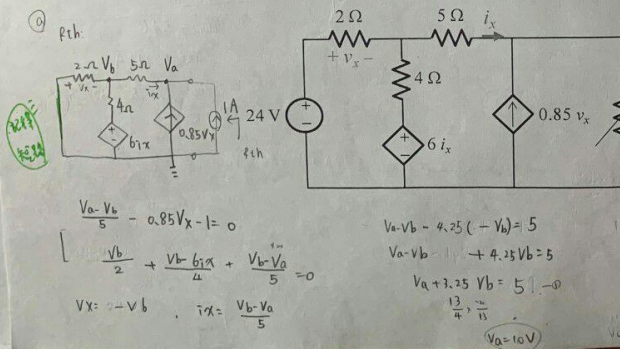 ⓐ
Rth:
2Ω Vb 5Ω Va
+ Vx - ix
4Ω
6ix
0.85Vx
1A
Rth
2 Ω
5 Ω
ix
+ vx −
4 Ω
24 V
6 ix
0.85 vx
(Va-Vb)/5 - 0.85Vx - 1 = 0
Vb/2 + (Vb-6ix)/4 + (Vb-Va)/5 = 0
Vx = -Vb , ix = (Vb-Va)/5
Va-Vb - 4.25(-Vb) = 5
Va-Vb + 4.25Vb = 5
Va + 3.25 Vb = 5
13/4
Va = 10V